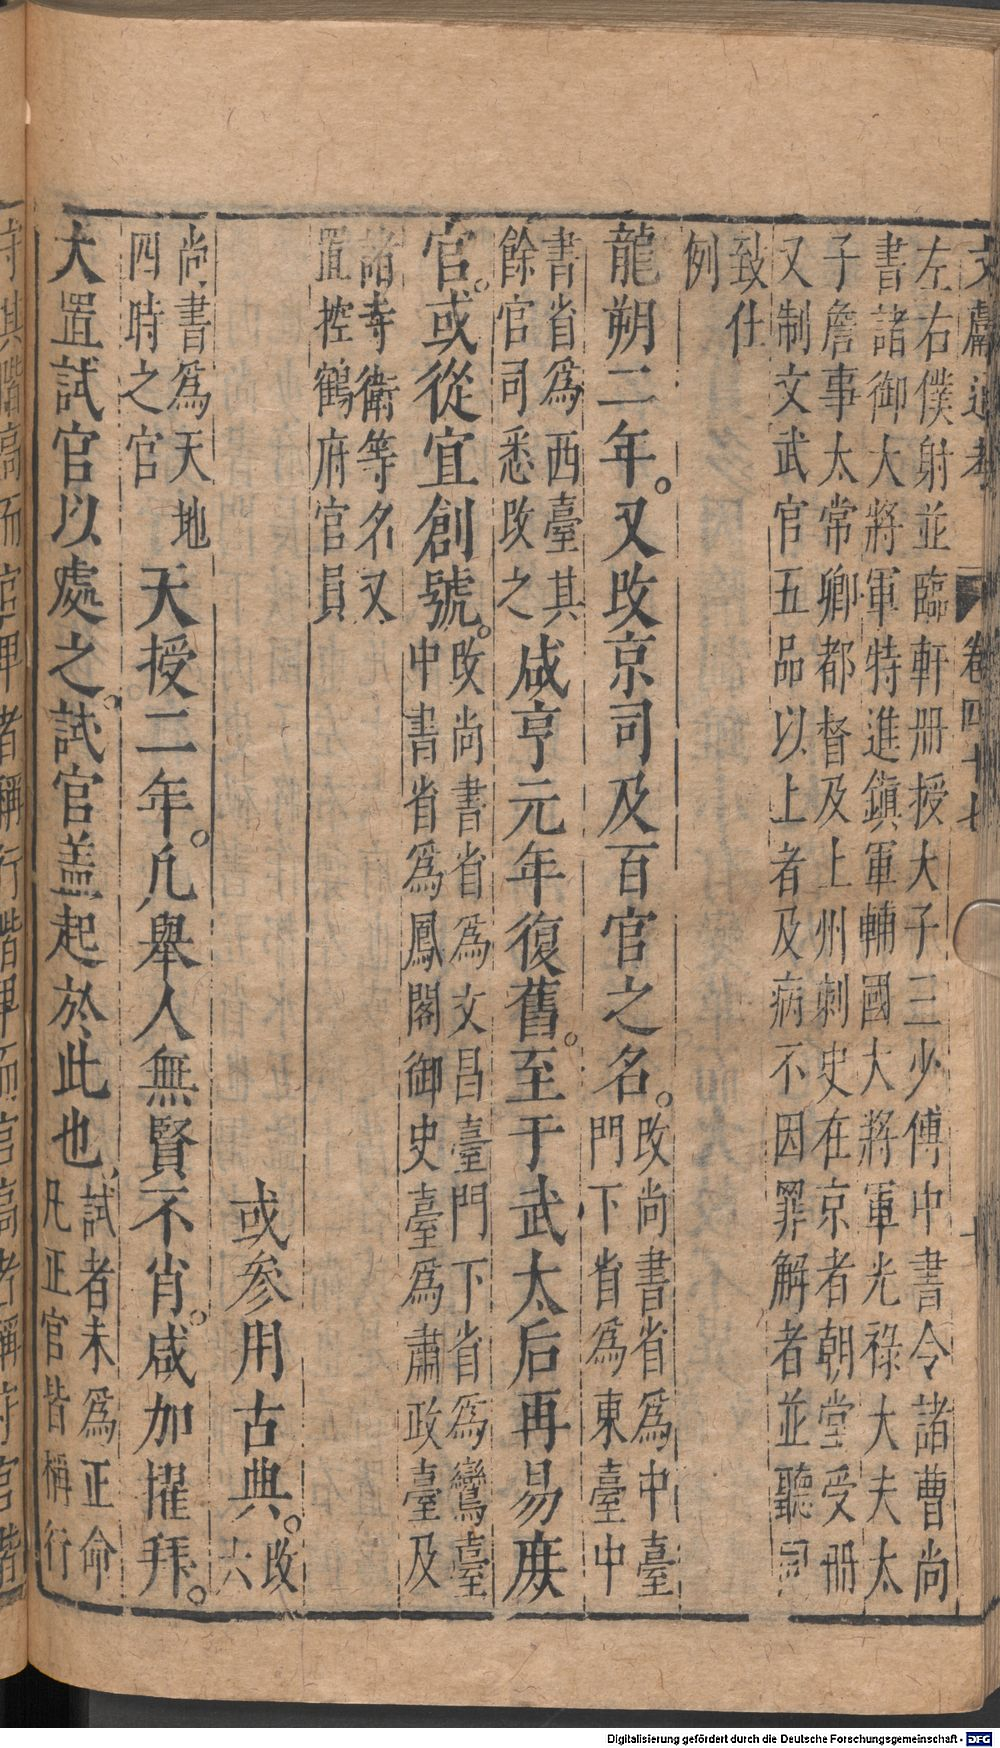 文獻通考
卷四十七
十
左右僕射並臨軒册授大子三少傅中書令諸曹尚
書諸御大將軍特進鎮軍輔國大將軍光祿大夫太
子詹事太常卿都督及上州刺史在京者朝堂受册
又制文武官五品以上者及病不因罪解者並聽同
致仕
例
龍朔二年。又改京司及百官之名。
改尚書省為中臺
門下省為東臺中
書省為西臺其
餘官司悉改之
咸亨元年復舊。至于武太后再易庻
官。或從宜創號。
改尚書省為文昌臺門下省為鸞臺
中書省為鳳閣御史臺為肅政臺及
諸寺衛等名又
置控鶴府官員
或參用古典。
改
六
尚書為天地
四時之官
天授二年。凡舉人無賢不肖。咸加擢拜。
大置試官以處之。試官盖起於此也、
試者未為正命
凡正官皆稱行
守其階高而官卑者稱行階卑而官高者稱守官階
Digitalisierung gefördert durch die Deutsche Forschungsgemeinschaft - DFG